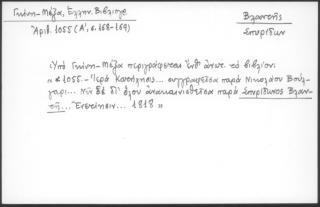 Γκίνη-Μέξα, Ἑλλην. Βιβλιογρ.
Ἀριθ. 1055 (Α', σ. 168-169)
Βλαντῆς
Σπυρίδων
Ὑπὸ Γκίνη-Μέξα περιγράφεται ἔνθ' ἀνωτ. τὸ βιβλίον:
« * 1055.- Ἱερὰ Κατήχησις... συγγραφεῖσα παρὰ Νικολάου Βούλ-
γαρι... Νῦν δὲ δι' ὅλου ἀνακαινισθεῖσα παρὰ Σπυρίδωνος Βλαν-
τῆ... Ἐνετίησιν... 1818 »